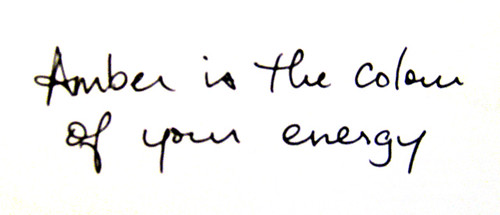 Amber is the colour
of your energy